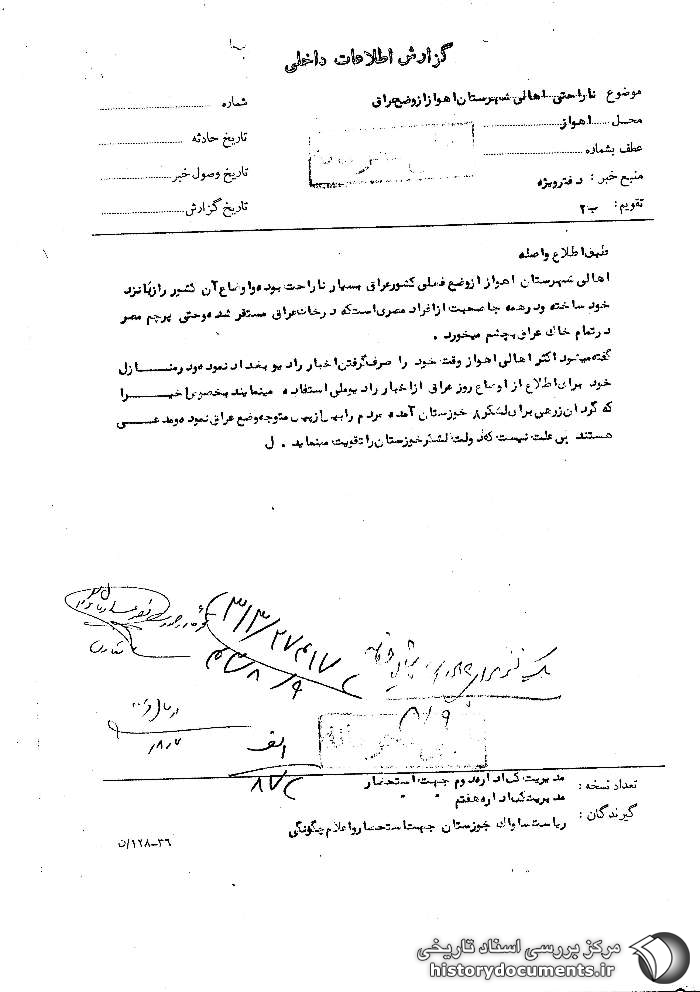 گزارش اطلاعات داخلی
موضوع ناراحتی اهالی شهرستان اهواز از وضع عراق
محل ..... اهواز
عطف بشماره
منبع خبر : دفتر ویژه
تقویم : ب۲
شماره
تاریخ حادثه
تاریخ وصول خبر
تاریخ گزارش
طبق اطلاع واصله
اهالی شهرستان اهواز از وضع فعلی کشور عراق بسیار ناراحت بوده و اوضاع آن کشور را زبانزد
خود ساخته و در همه جا صحبت از افراد مصری است که در خاک عراق مستقر شده و حتی پرچم مصر
در تمام خاک عراق بچشم میخورد .
گفته میشود اکثر اهالی اهواز وقت خود را صرف گرفتن اخبار رادیو بغداد نموده و در منازل
خود برای اطلاع از اوضاع روز عراق از اخبار رادیو ملی استفاده مینمایند بخصوص اخیرا
که گردان زرهی برای لشکر ۸ خوزستان آمده مردم را بیش از پیش متوجه وضع عراق نموده و مدعی
هستند بی علت نیست که دولت لشکر خوزستان را تقویت مینماید . ل
۸/۹
الف
تعداد نسخه :
مدیریت کل اداره دوم جهت استحضار
مدیریت کل اداره هفتم " "
گیرندگان :
ریاست ساواک خوزستان جهت استحضار و اعلام چگونگی
۳۶-۱۲۸/ن
مرکز بررسی اسناد تاریخی
historydocuments.ir